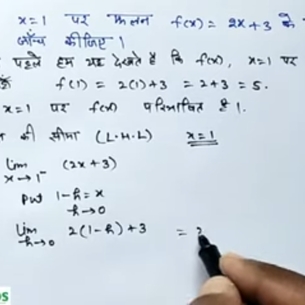 x=1 पर फलन f(x) = 2x+3 के
जाँच कीजिए।
पहले हम यह देखते है कि f(x), x=1 पर
f(1) = 2(1)+3 = 2+3 = 5.
x=1 पर f(x) परिभाषित है।
की सीमा (L.H.L) x=1
lim (2x+3)
x→1⁻
put 1-h=x
h→0
lim 2(1-h)+3 =
h→0